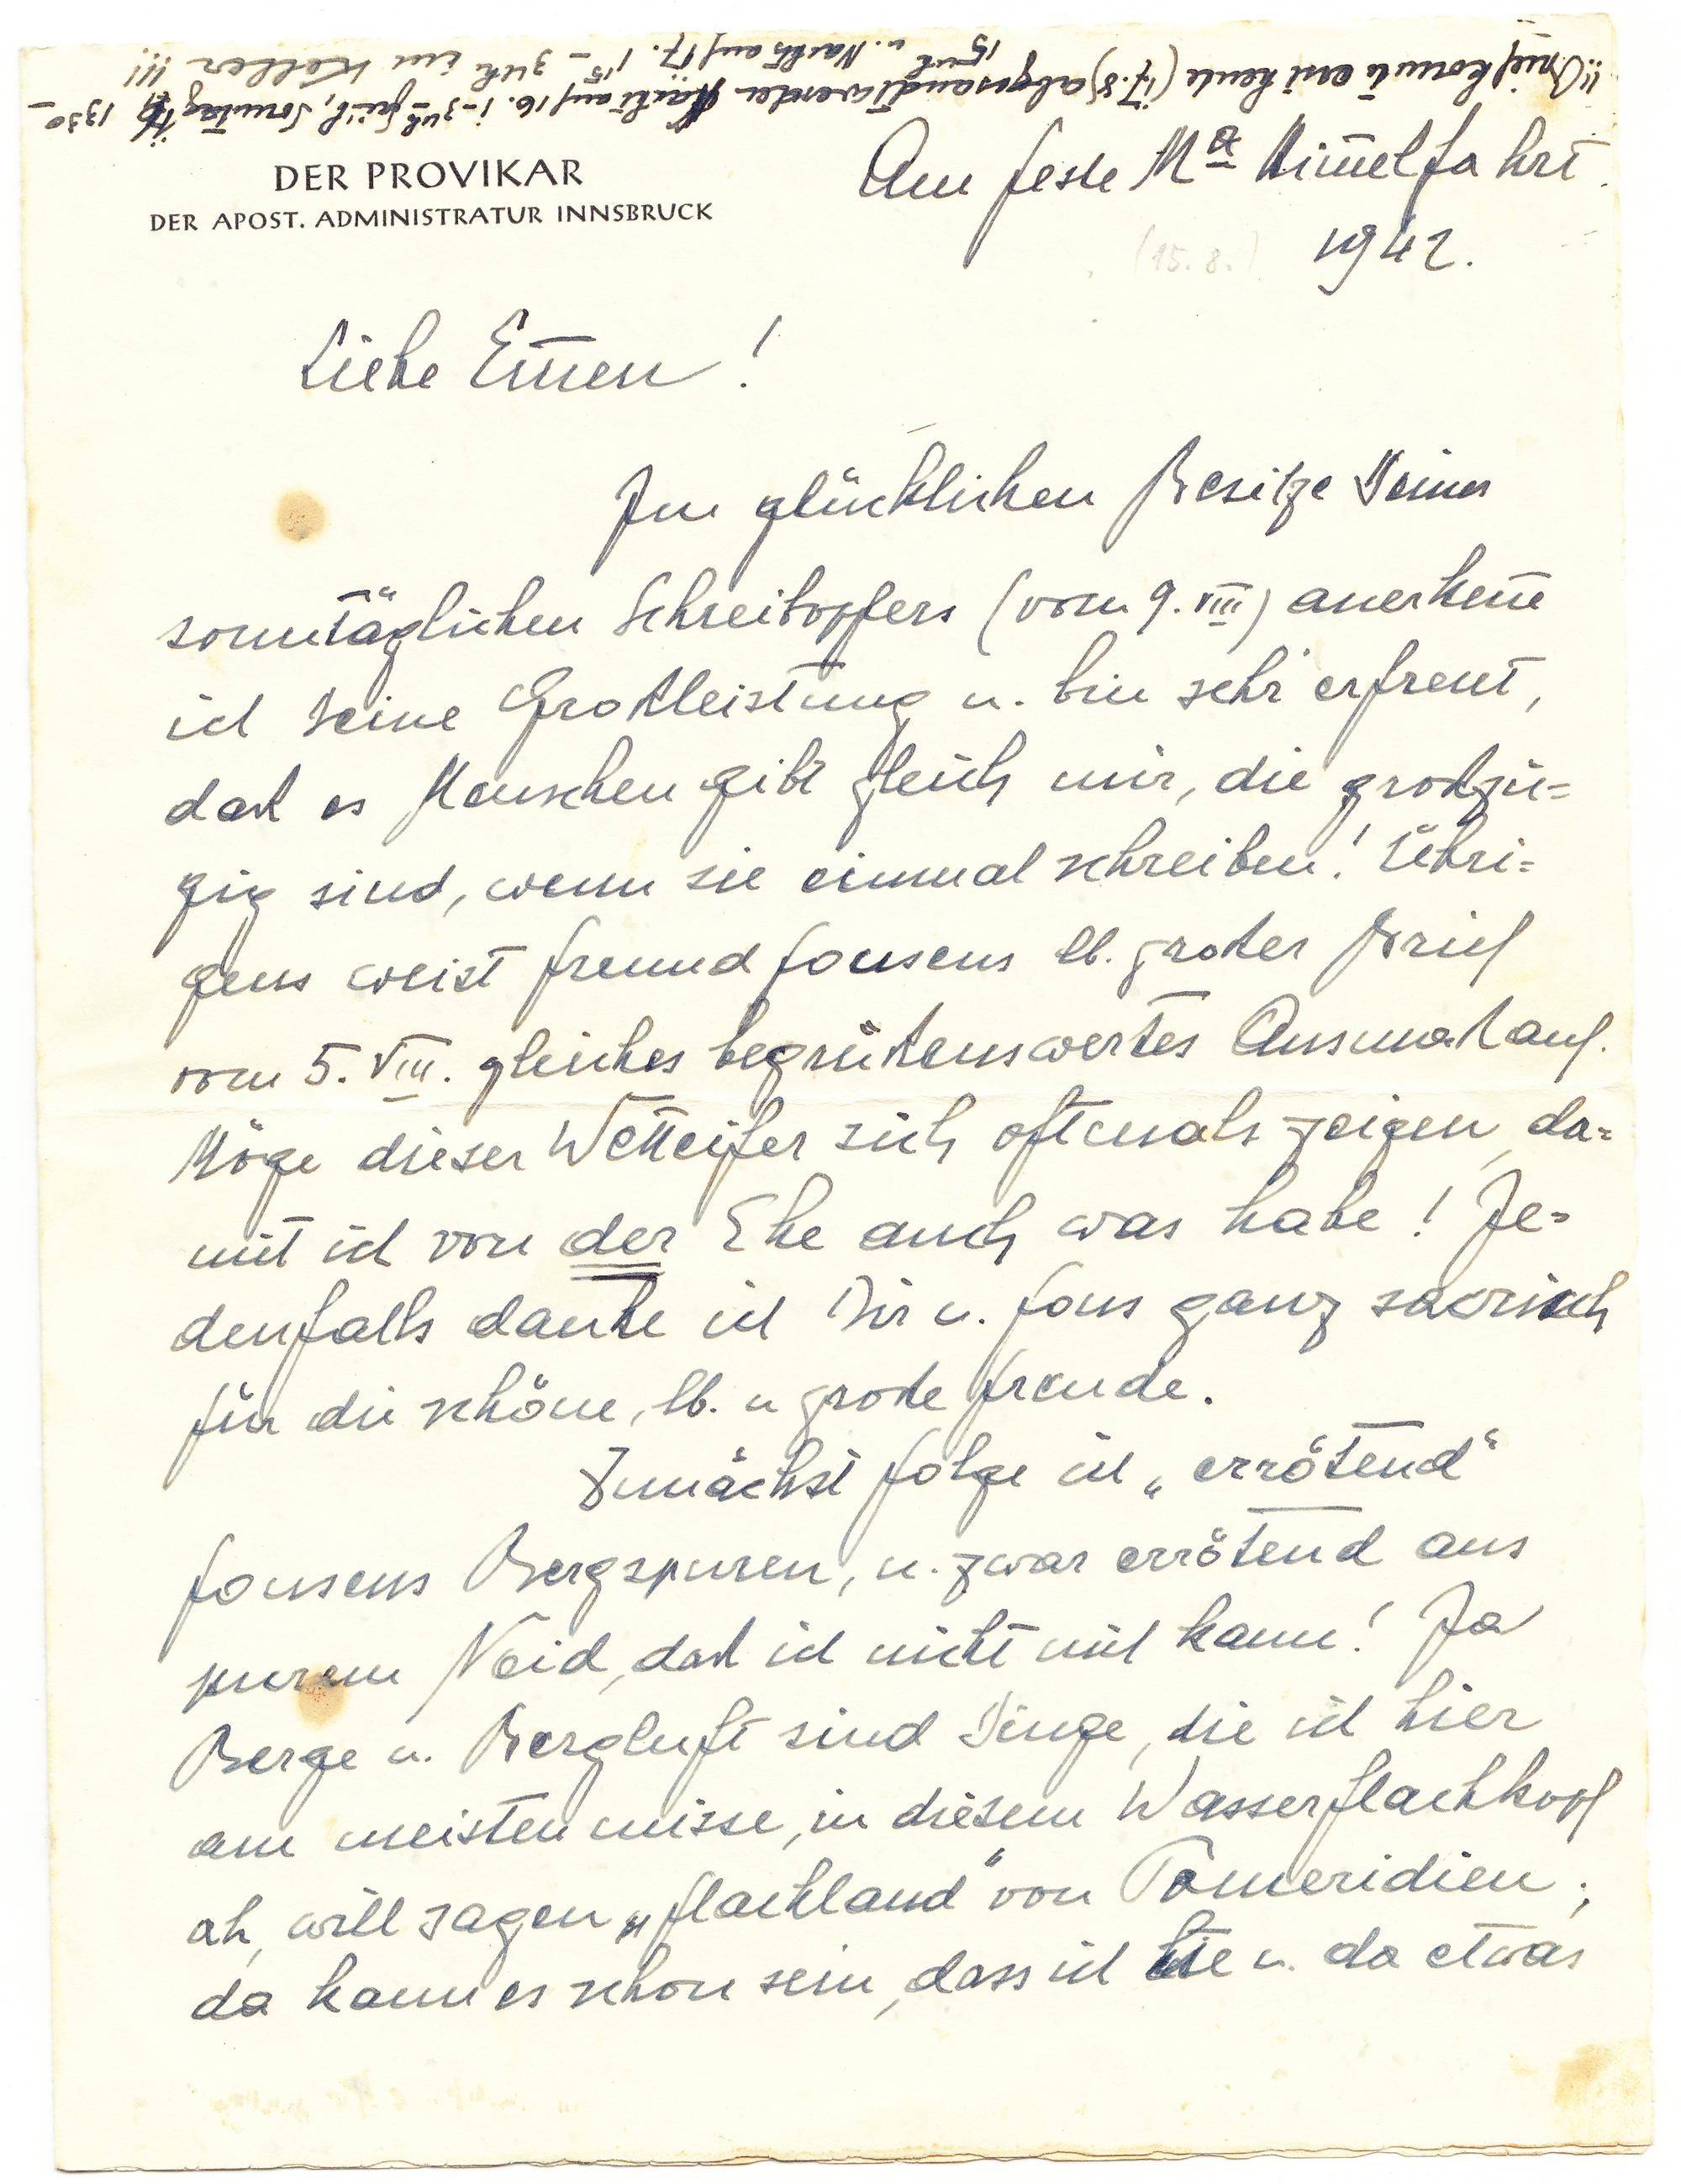 !! Brief konnte erst heute (17.8) abgesandt werden Nacht auf 16. 1-3 Uhr früh, Sonntag 13³⁰ –
15 Uhr u. Nachts auf 17. 1¹⁵ – 3 Uhr im Keller !!!
DER PROVIKAR
DER APOST. ADMINISTRATUR INNSBRUCK
Am Feste Mᵃ Himmelfahrt
1942.
(15. 8.)
Liebe Emmen!
Im glücklichen Besitze Deines
sonntäglichen Schreibopfers (vom 9. VIII) anerkenne
ich Deine Großleistung u. bin sehr erfreut,
daß es Menschen gibt gleich mir, die großzü=
gig sind, wenn sie einmal schreiben! Übri=
gens weist Freund Fonsens lb. großer Brief
vom 5. VIII. gleiches begrüßenswertes Ausmaß auf.
Möge dieser Wetteifer sich oftmals zeigen, da=
mit ich von der Ehe auch was habe! Je=
denfalls danke ich Dir u. Fons ganz sakrisch
für die schöne, lb. u große Freude.
Zunächst folge ich „errötend"
Fonsens Bergspuren, u. zwar errötend aus
purem Neid, daß ich nicht mit kann! Ja
Berge u. Bergluft sind Dinge, die ich hier
am meisten misse, in diesem Wasserflachkopf
ah, will sagen „Flachland" von Pomeridien;
da kann es schon sein, dass ich hie u. da etwas